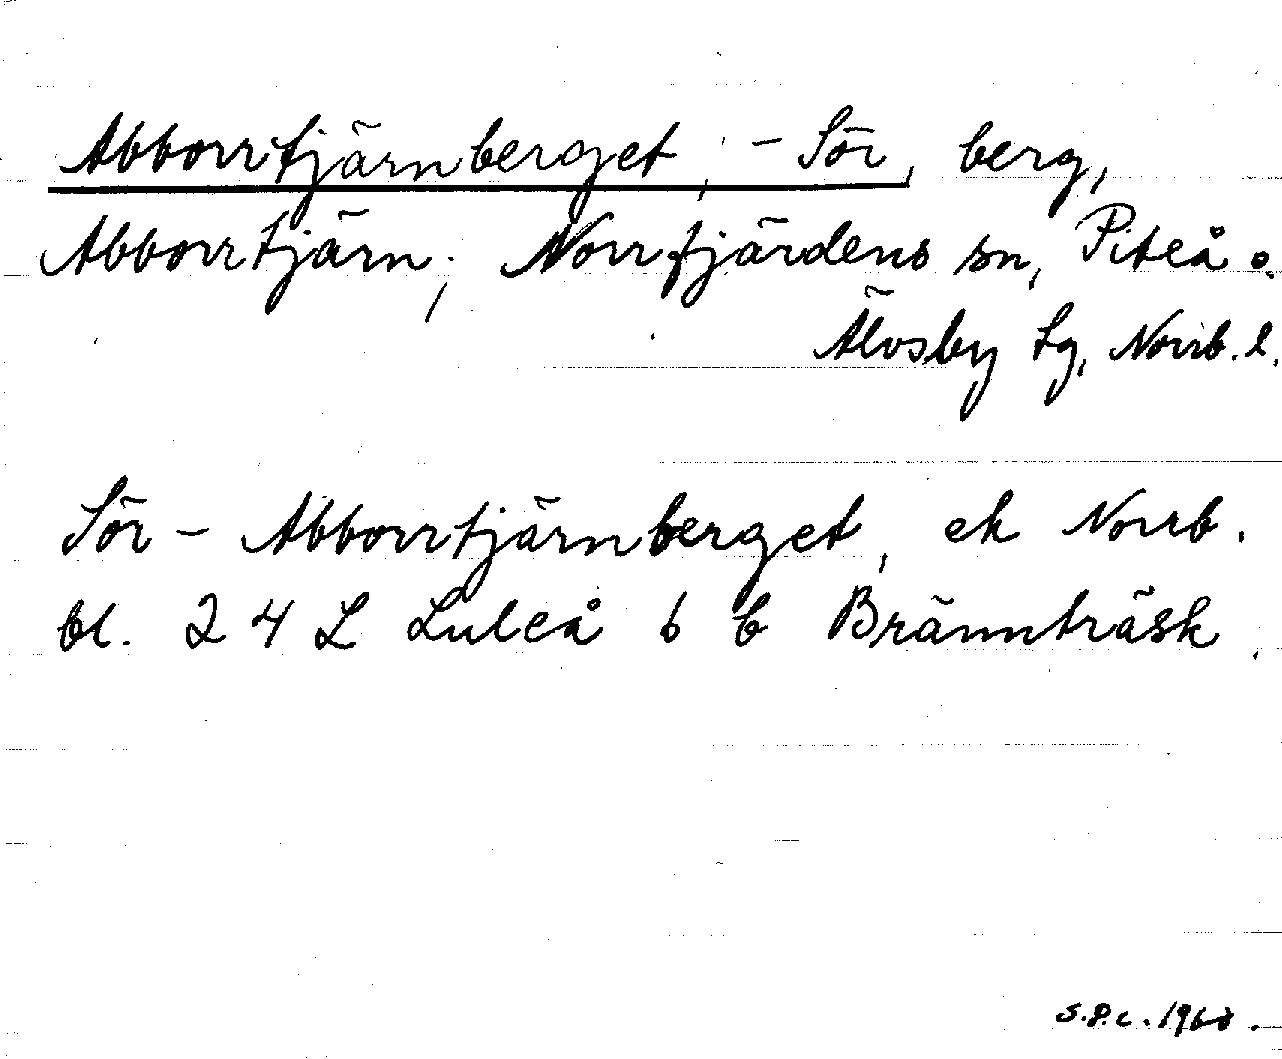 Abborrtjärnberget, - Sör, berg,
Abborrtjärn, Norrfjärdens sn, Piteå o.
Älvsby tg, Norrb. l.
Sör - Abborrtjärnberget, ek Norrb.
bl. 24 L Luleå 6 b Brännträsk.
S.P.C. 1968.